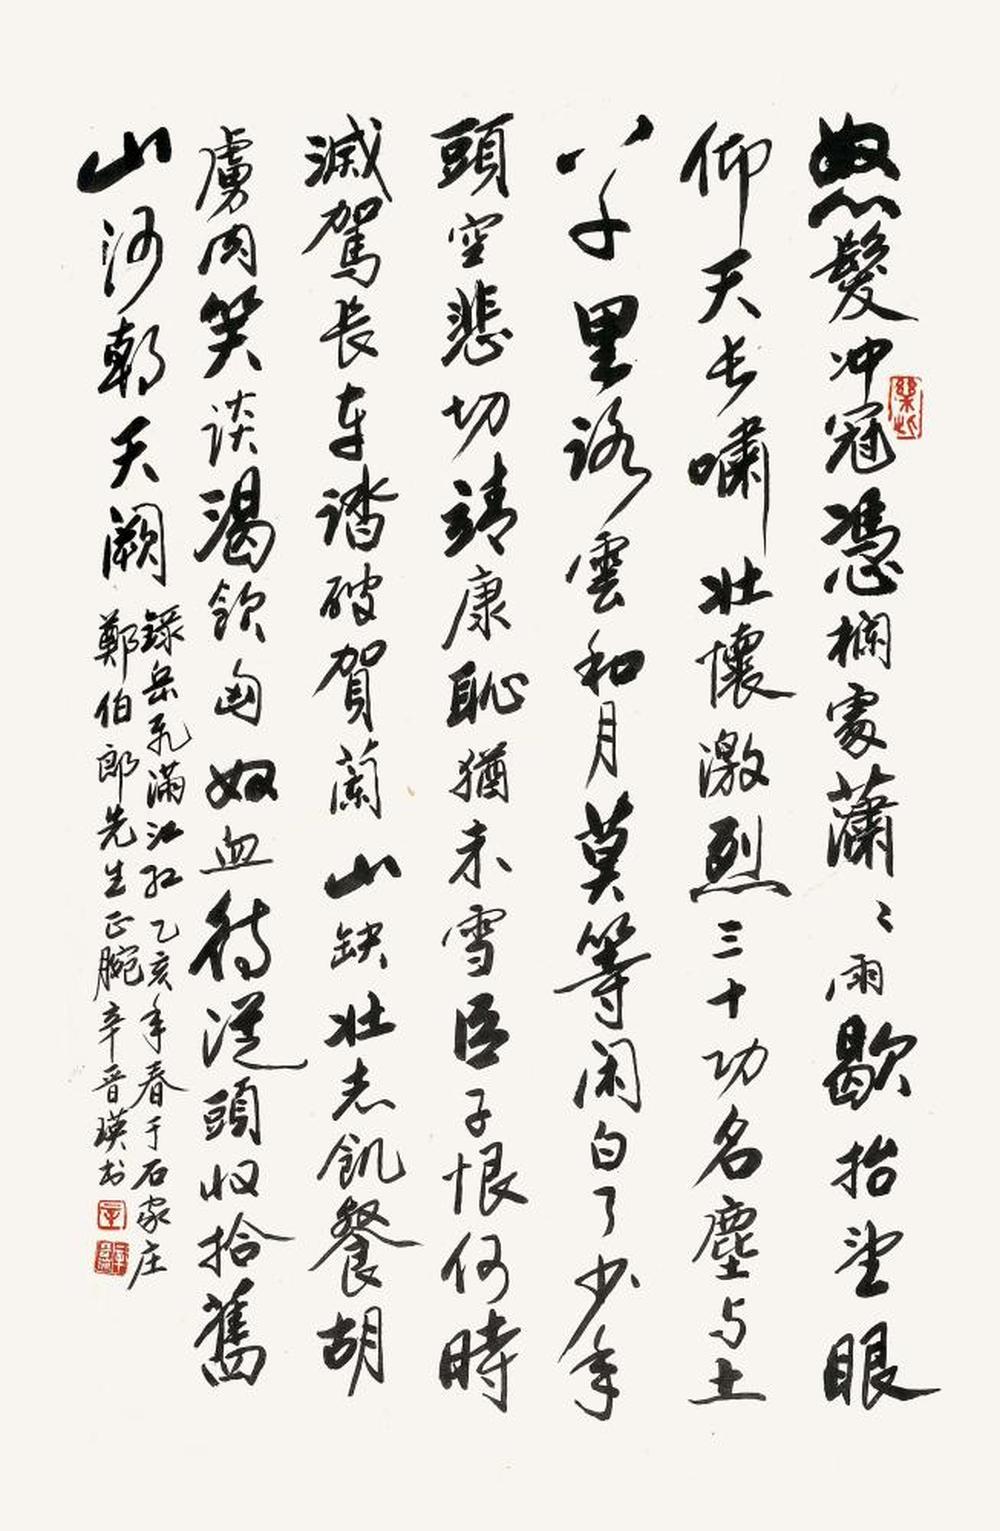 怒髮冲冠憑欄處瀟〻雨歇抬望眼
仰天長嘯壯懷激烈三十功名塵与土
八千里路雲和月莫等闲白了少年
頭空悲切靖康恥猶未雪臣子恨何時
滅駕長车踏破賀蘭山缺壮志飢餐胡
虜肉笑談渴飲匈奴血待從頭收拾舊
山河朝天闕
錄岳飛滿江红乙亥年春于石家庄
鄭伯郎先生正腕辛晋瑛书